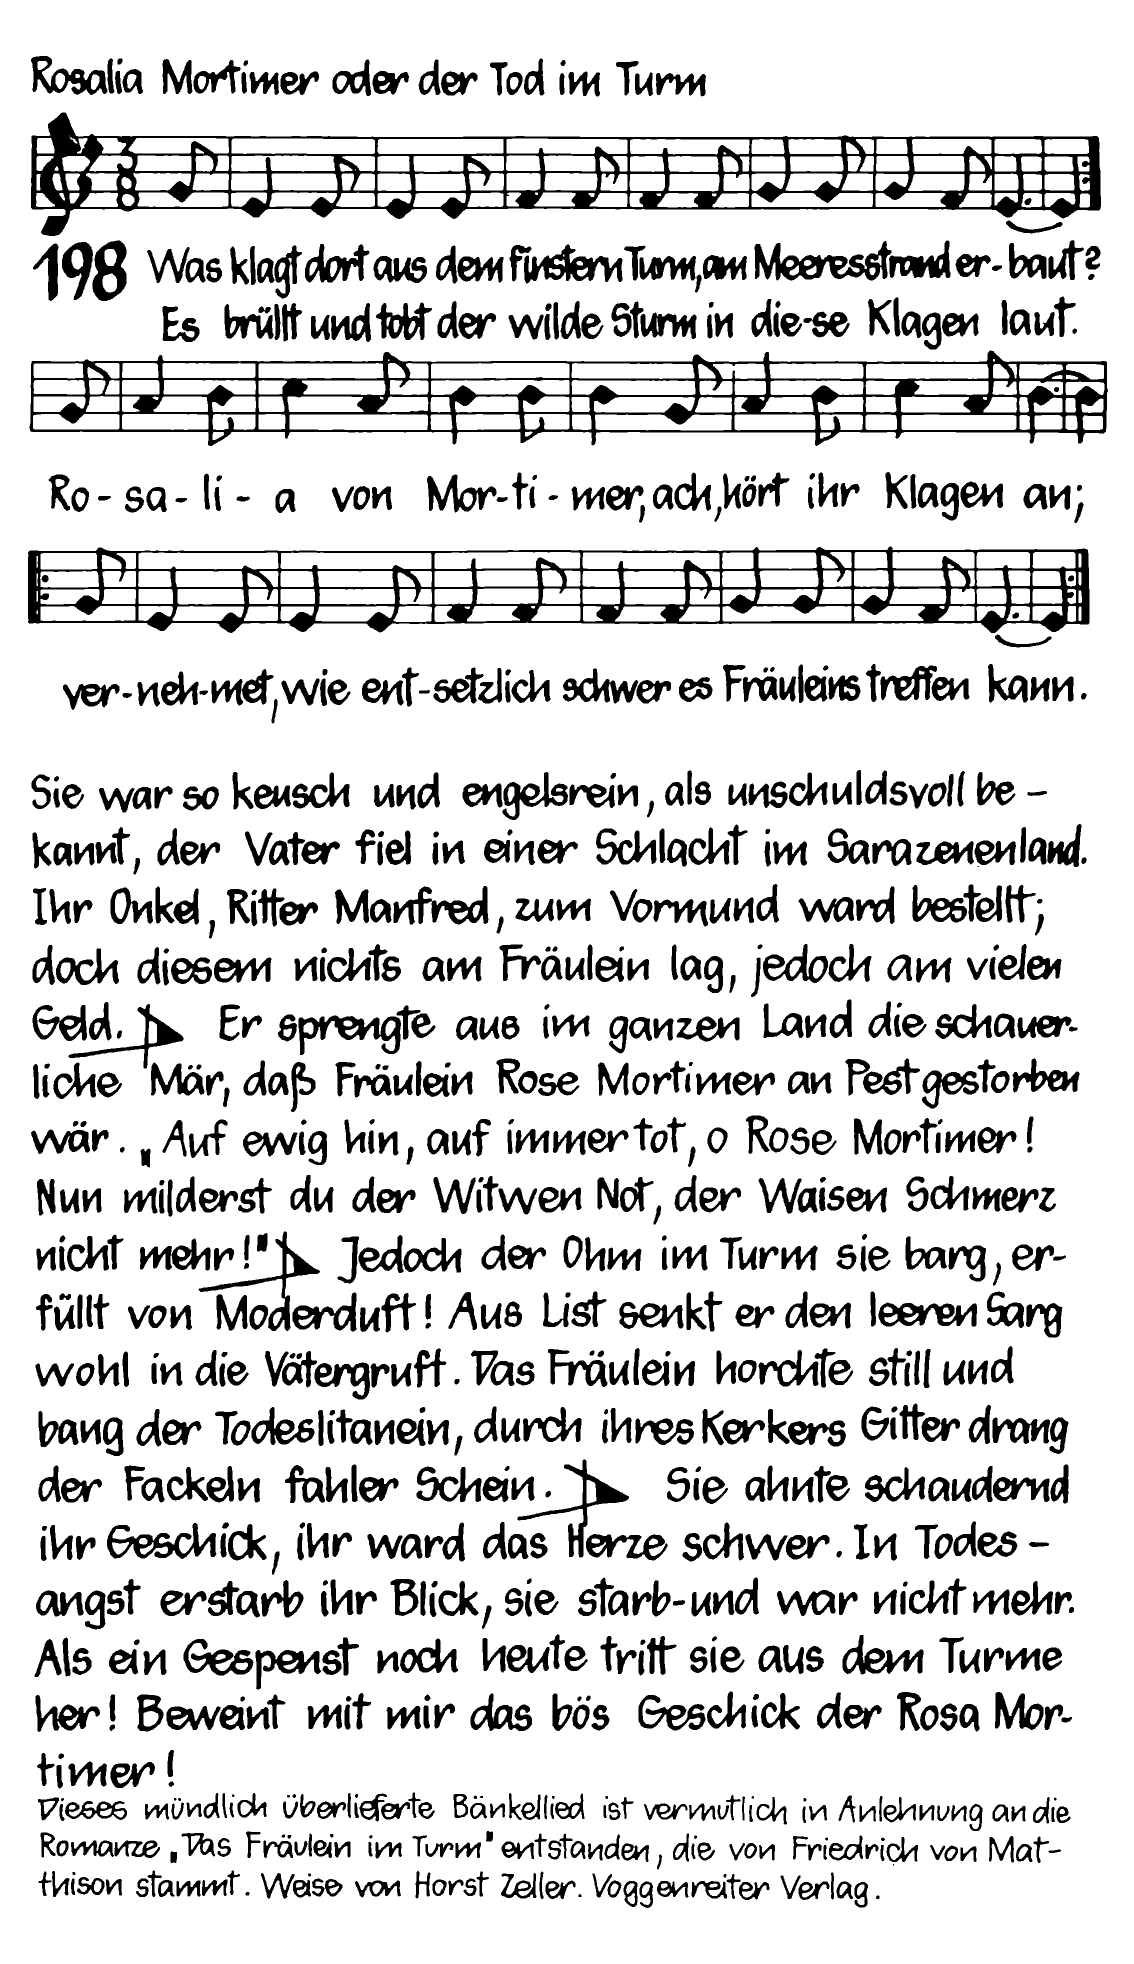 Rosalia Mortimer oder der Tod im Turm
3
8
198 Was klagt dort aus dem finstern Turm, am Meeresstrand er-baut?
Es brüllt und tobt der wilde Sturm in die-se Klagen laut.
Ro-sa-li-a von Mor-ti-mer, ach, hört ihr Klagen an;
ver-neh-met, wie ent-setzlich schwer es Fräuleins treffen kann.
Sie war so keusch und engelsrein, als unschuldsvoll be-
kannt, der Vater fiel in einer Schlacht im Sarazenenland.
Ihr Onkel, Ritter Manfred, zum Vormund ward bestellt;
doch diesem nichts am Fräulein lag, jedoch am vielen
Geld. Er sprengte aus im ganzen Land die schauer-
liche Mär, daß Fräulein Rose Mortimer an Pest gestorben
wär. „Auf ewig hin, auf immer tot, o Rose Mortimer!
Nun milderst du der Witwen Not, der Waisen Schmerz
nicht mehr!" Jedoch der Ohm im Turm sie barg, er-
füllt von Moderduft! Aus List senkt er den leeren Sarg
wohl in die Vätergruft. Das Fräulein horchte still und
bang der Todeslitanein, durch ihres Kerkers Gitter drang
der Fackeln fahler Schein. Sie ahnte schaudernd
ihr Geschick, ihr ward das Herze schwer. In Todes-
angst erstarb ihr Blick, sie starb-und war nicht mehr.
Als ein Gespenst noch heute tritt sie aus dem Turme
her! Beweint mit mir das bös Geschick der Rosa Mor-
timer!
Dieses mündlich überlieferte Bänkellied ist vermutlich in Anlehnung an die
Romanze „Das Fräulein im Turm" entstanden, die von Friedrich von Mat-
thison stammt. Weise von Horst Zeller. Voggenreiter Verlag.